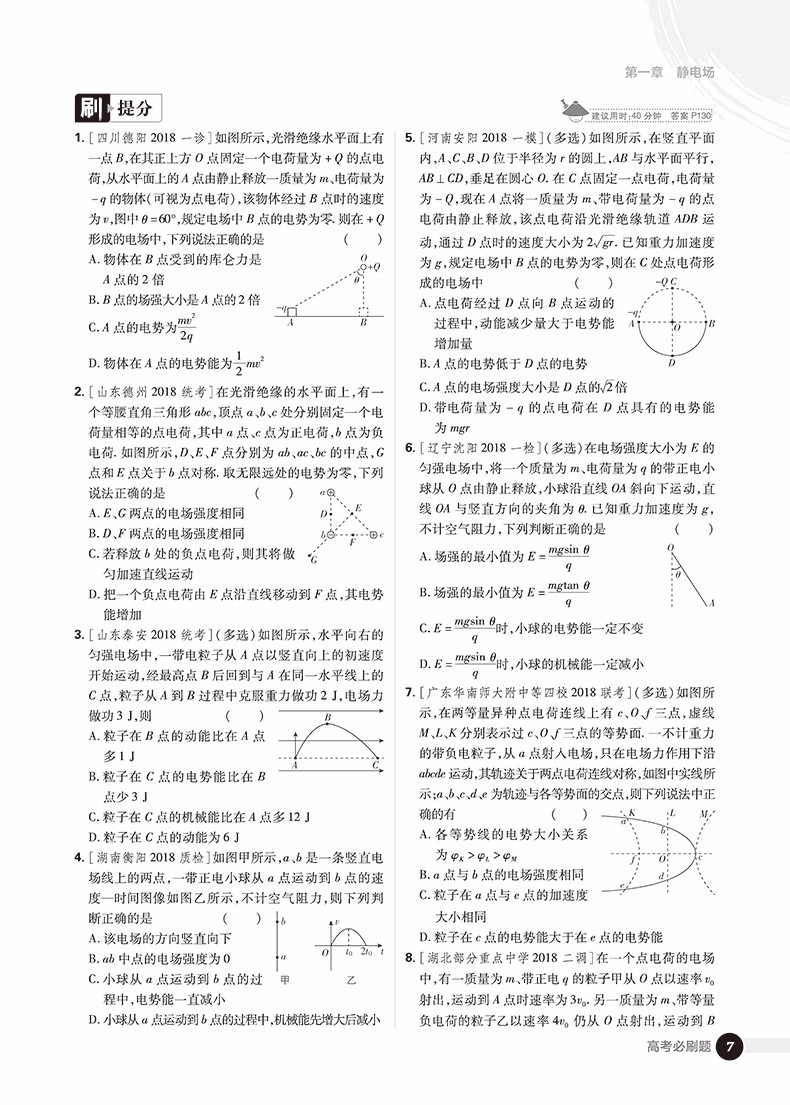 第一章 静电场
刷 提分
建议用时:40 分钟 答案 P130
1. [四川德阳 2018 一诊]如图所示,光滑绝缘水平面上有
一点 B,在其正上方 O 点固定一个电荷量为 + Q 的点电
荷,从水平面上的 A 点由静止释放一质量为 m、电荷量为
- q 的物体(可视为点电荷),该物体经过 B 点时的速度
为 v,图中 θ = 60°,规定电场中 B 点的电势为零. 则在 + Q
形成的电场中,下列说法正确的是 ( )
A. 物体在 B 点受到的库仑力是
A 点的 2 倍
B. B 点的场强大小是 A 点的 2 倍
C. A 点的电势为 mv²/2q
D. 物体在 A 点的电势能为 1/2 mv²
O
+Q
θ
-q
A
B
2. [山东德州 2018 统考]在光滑绝缘的水平面上,有一
个等腰直角三角形 abc,顶点 a、b、c 处分别固定一个电
荷量相等的点电荷,其中 a 点、c 点为正电荷,b 点为负
电荷. 如图所示,D、E、F 点分别为 ab、ac、bc 的中点,G
点和 E 点关于 b 点对称. 取无限远处的电势为零,下列
说法正确的是 ( )
A. E、G 两点的电场强度相同
B. D、F 两点的电场强度相同
C. 若释放 b 处的负点电荷,则其将做
匀加速直线运动
D. 把一个负点电荷由 E 点沿直线移动到 F 点,其电势
能增加
a
D
E
b
F
c
G
3. [山东泰安 2018 统考](多选)如图所示,水平向右的
匀强电场中,一带电粒子从 A 点以竖直向上的初速度
开始运动,经最高点 B 后回到与 A 在同一水平线上的
C 点,粒子从 A 到 B 过程中克服重力做功 2 J,电场力
做功 3 J,则 ( )
A. 粒子在 B 点的动能比在 A 点
多 1 J
B. 粒子在 C 点的电势能比在 B
点少 3 J
C. 粒子在 C 点的机械能比在 A 点多 12 J
D. 粒子在 C 点的动能为 6 J
B
A
C
4. [湖南衡阳 2018 质检]如图甲所示,a、b 是一条竖直电
场线上的两点,一带正电小球从 a 点运动到 b 点的速
度—时间图像如图乙所示,不计空气阻力,则下列判
断正确的是 ( )
A. 该电场的方向竖直向下
B. ab 中点的电场强度为 0
C. 小球从 a 点运动到 b 点的过
程中,电势能一直减小
D. 小球从 a 点运动到 b 点的过程中,机械能先增大后减小
b
a
甲
v
O t₀ 2t₀ t
乙
5. [河南安阳 2018 一模](多选)如图所示,在竖直平面
内,A、C、B、D 位于半径为 r 的圆上,AB 与水平面平行,
AB ⊥ CD,垂足在圆心 O. 在 C 点固定一点电荷,电荷量
为 - Q,现在 A 点将一质量为 m、带电荷量为 - q 的点
电荷由静止释放,该点电荷沿光滑绝缘轨道 ADB 运
动,通过 D 点时的速度大小为 2√gr. 已知重力加速度
为 g,规定电场中 B 点的电势为零,则在 C 处点电荷形
成的电场中 ( )
A. 点电荷经过 D 点向 B 点运动的
过程中,动能减少量大于电势能
增加量
B. A 点的电势低于 D 点的电势
C. A 点的电场强度大小是 D 点的√2倍
D. 带电荷量为 - q 的点电荷在 D 点具有的电势能
为 mgr
-Q C
-q
A
O
B
D
6. [辽宁沈阳 2018 一检](多选)在电场强度大小为 E 的
匀强电场中,将一个质量为 m、电荷量为 q 的带正电小
球从 O 点由静止释放,小球沿直线 OA 斜向下运动,直
线 OA 与竖直方向的夹角为 θ. 已知重力加速度为 g,
不计空气阻力,下列判断正确的是 ( )
A. 场强的最小值为 E = mgsin θ/q
B. 场强的最小值为 E = mgtan θ/q
C. E = mgsin θ/q 时,小球的电势能一定不变
D. E = mgsin θ/q 时,小球的机械能一定减小
O
θ
A
7. [广东华南师大附中等四校 2018 联考](多选)如图所
示,在两等量异种点电荷连线上有 c、O、f 三点,虚线
M、L、K 分别表示过 c、O、f 三点的等势面. 一不计重力
的带负电粒子,从 a 点射入电场,只在电场力作用下沿
abcde 运动,其轨迹关于两点电荷连线对称,如图中实线所
示;a、b、c、d、e 为轨迹与各等势面的交点,则下列说法中正
确的有 ( )
A. 各等势线的电势大小关系
为 φK > φL > φM
B. a 点与 b 点的电场强度相同
C. 粒子在 a 点与 e 点的加速度
大小相同
D. 粒子在 c 点的电势能大于在 e 点的电势能
K L M
a
b
f O c
d
e
8. [湖北部分重点中学 2018 二调]在一个点电荷的电场
中,有一质量为 m、带正电 q 的粒子甲从 O 点以速率 v₀
射出,运动到 A 点时速率为 3v₀. 另一质量为 m、带等量
负电荷的粒子乙以速率 4v₀ 仍从 O 点射出,运动到 B
高考必刷题 7